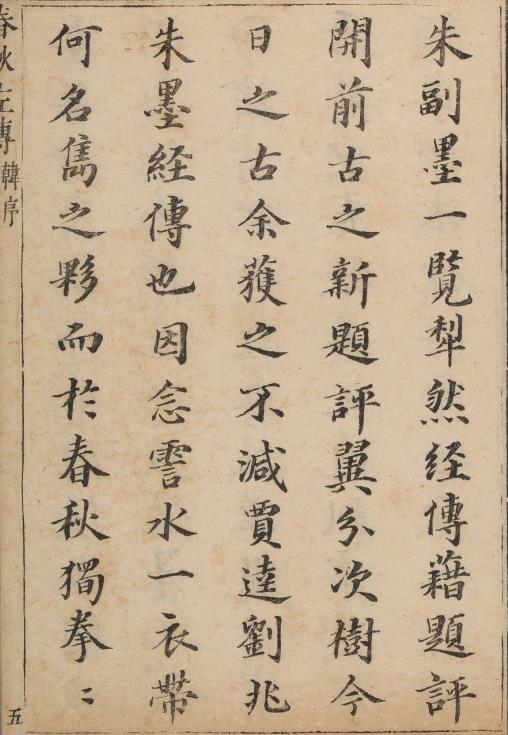 朱副墨一覧犁然経傳藉題評
開前古之新題評翼分次樹今
日之古余獲之不減賈逵劉兆
朱墨経傳也因念霅水一衣帶
何名雋之夥而於春秋獨拳〻
春秋左傳韓序
五